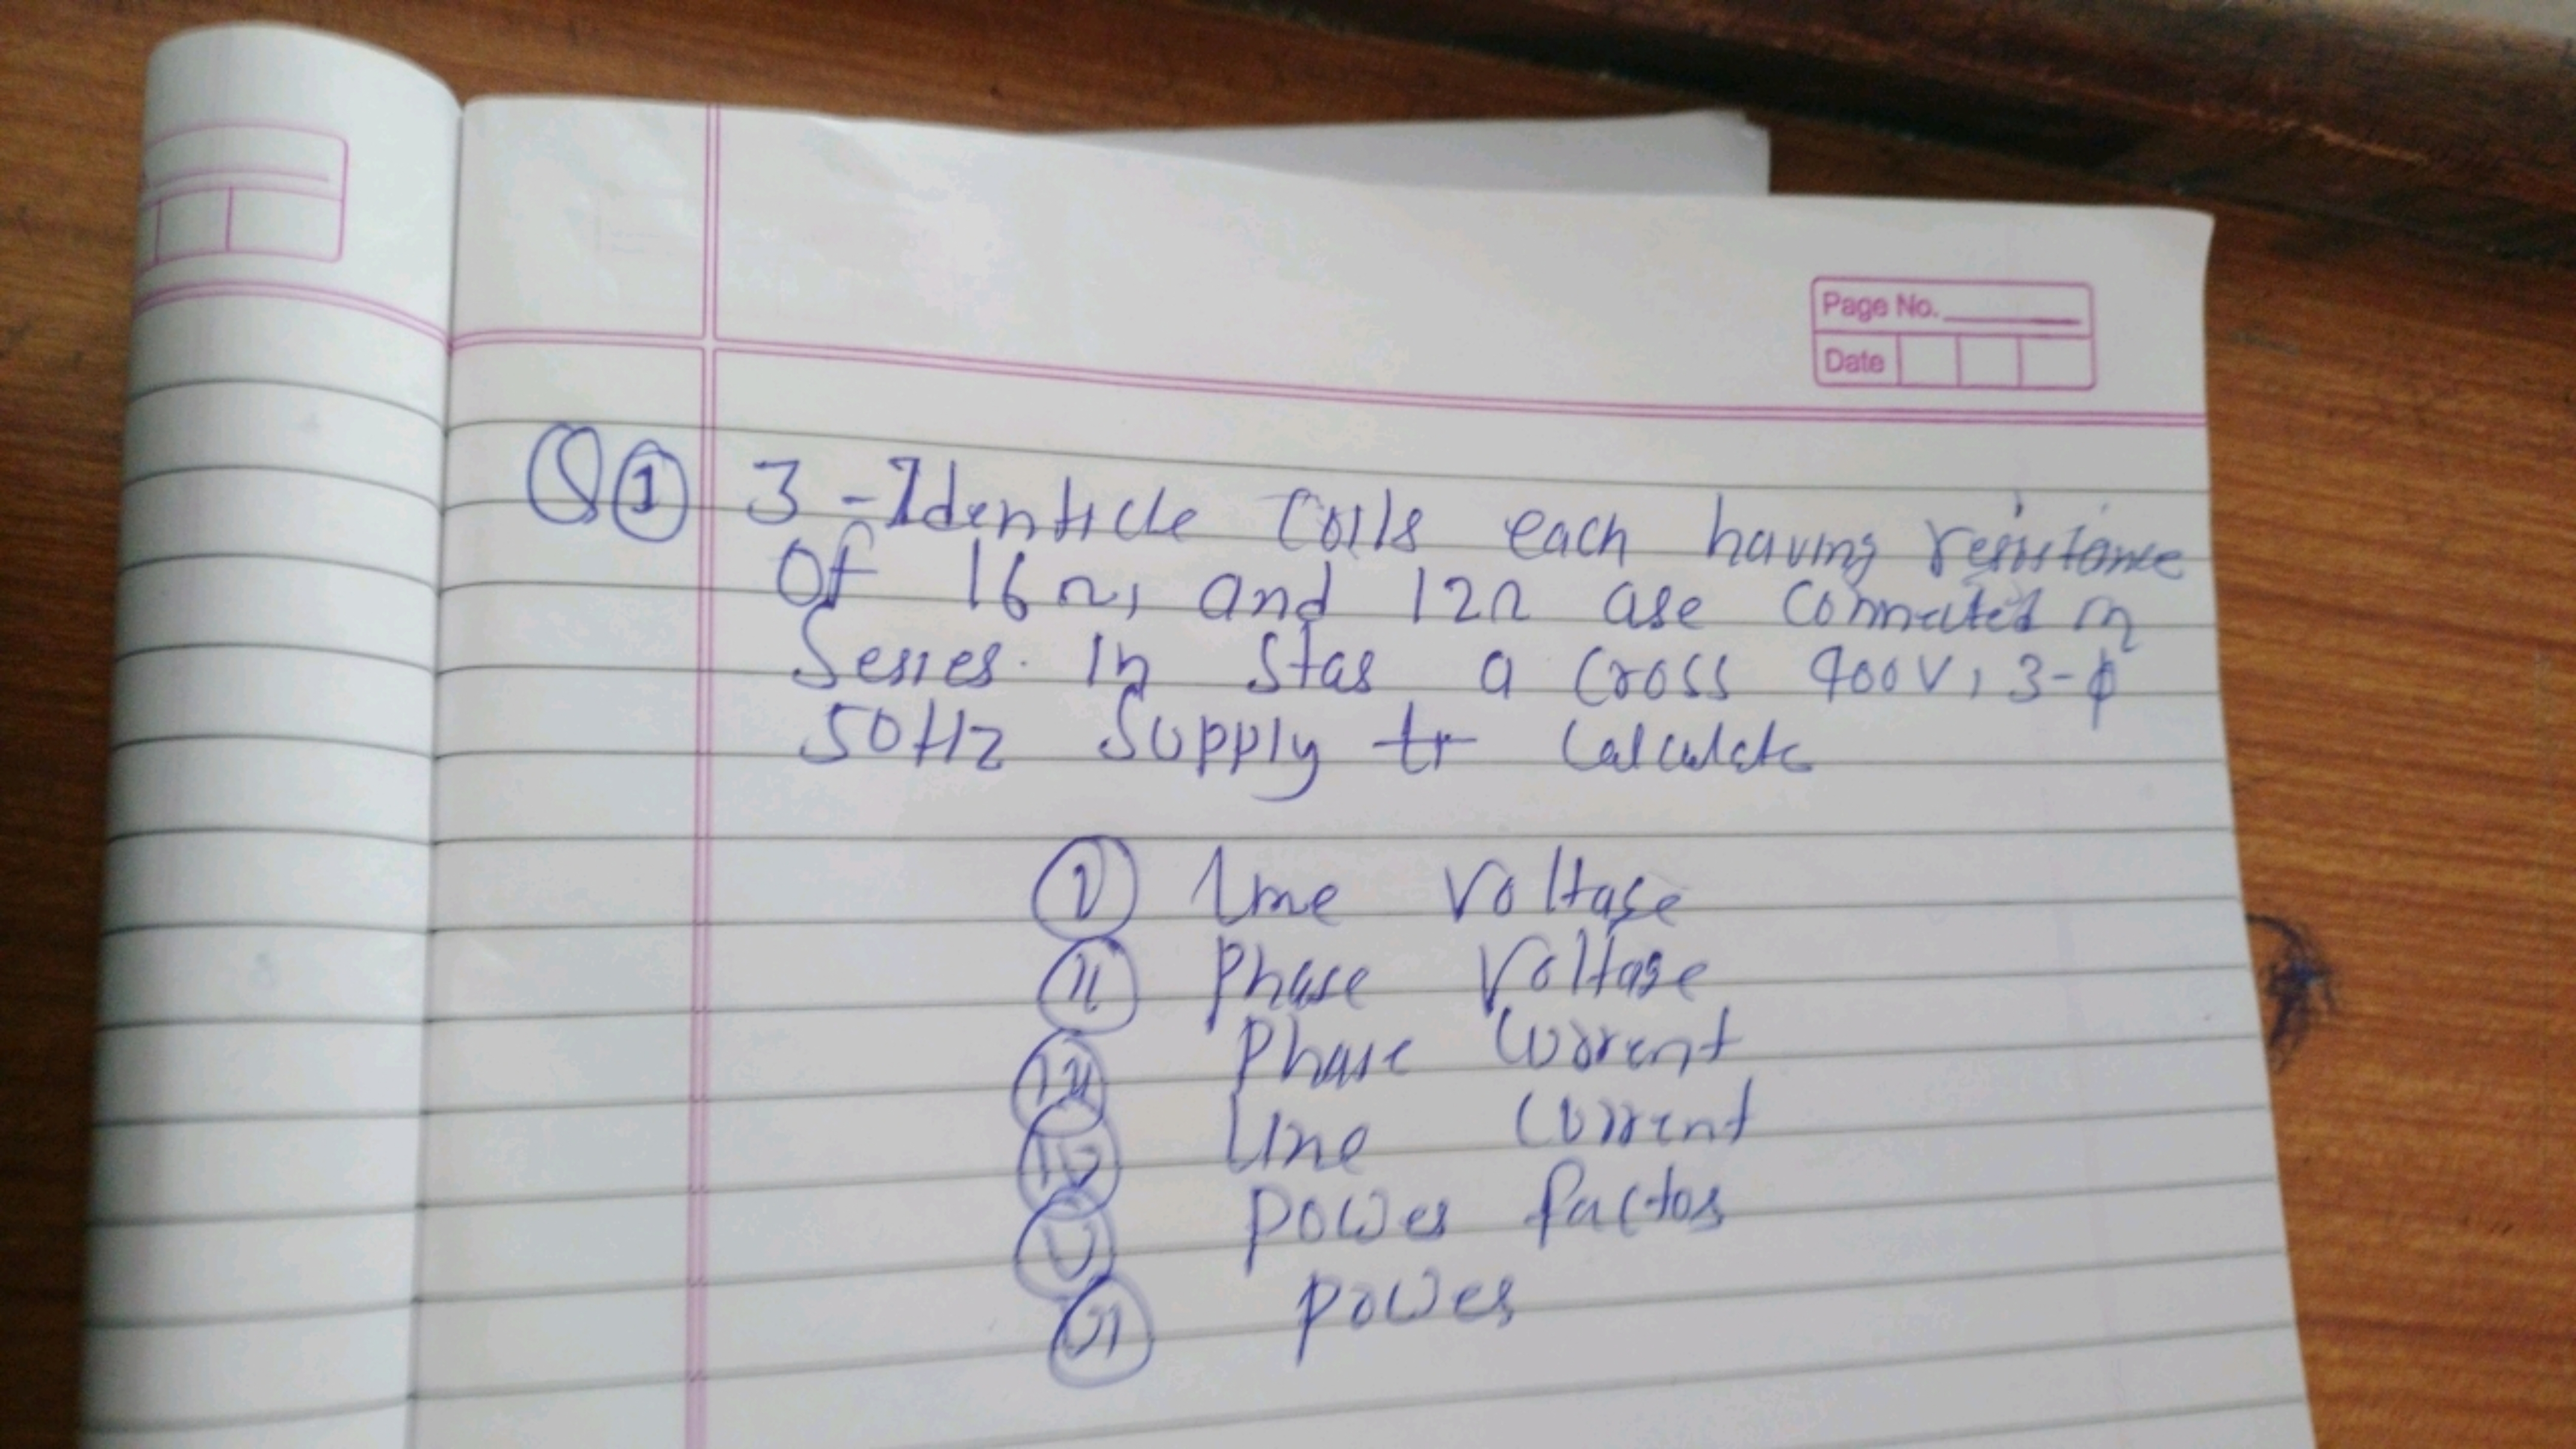 Page No.
Date
Q 1 3-Identicle Coils each having resistance
Of 16Ω, and 12Ω are Connected in
Series. In Star a Cross 400V, 3-ϕ
50Hz Supply to Calculate
i line Voltage
ii Phase Voltage
iii Phase Current
iv Line Current
v Power factor
vi Power